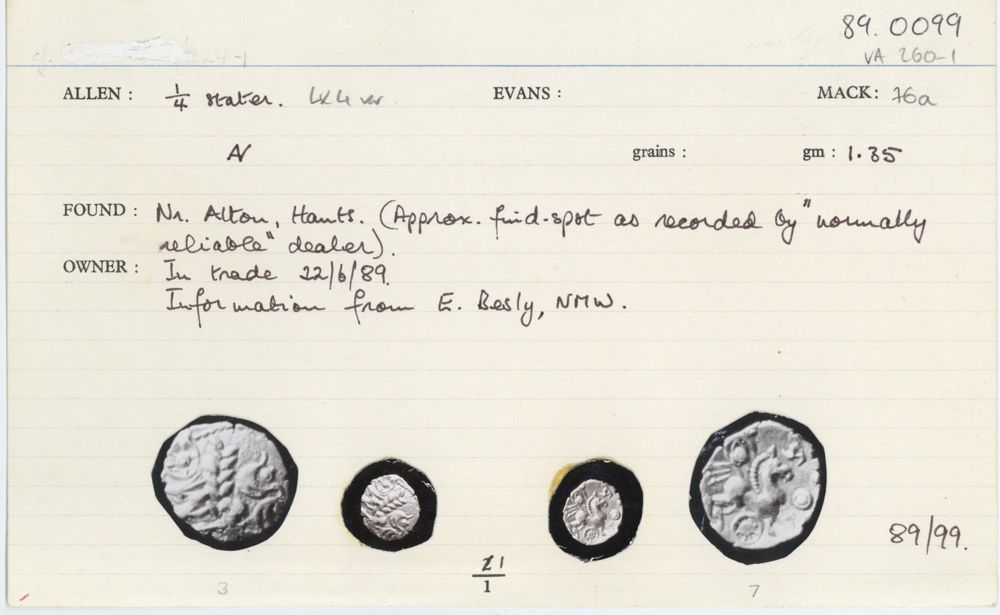 89. 0099
VA 260-1
ALLEN : 1/4 stater. EVANS : MACK: 76a
N grains : gm : 1.35
FOUND : Nr. Alton, Hants. (Approx. find-spot as recorded by "normally
reliable" dealer).
OWNER : In trade 22/6/89.
Information from E. Besly, NMW.
89/99.
1
3 7